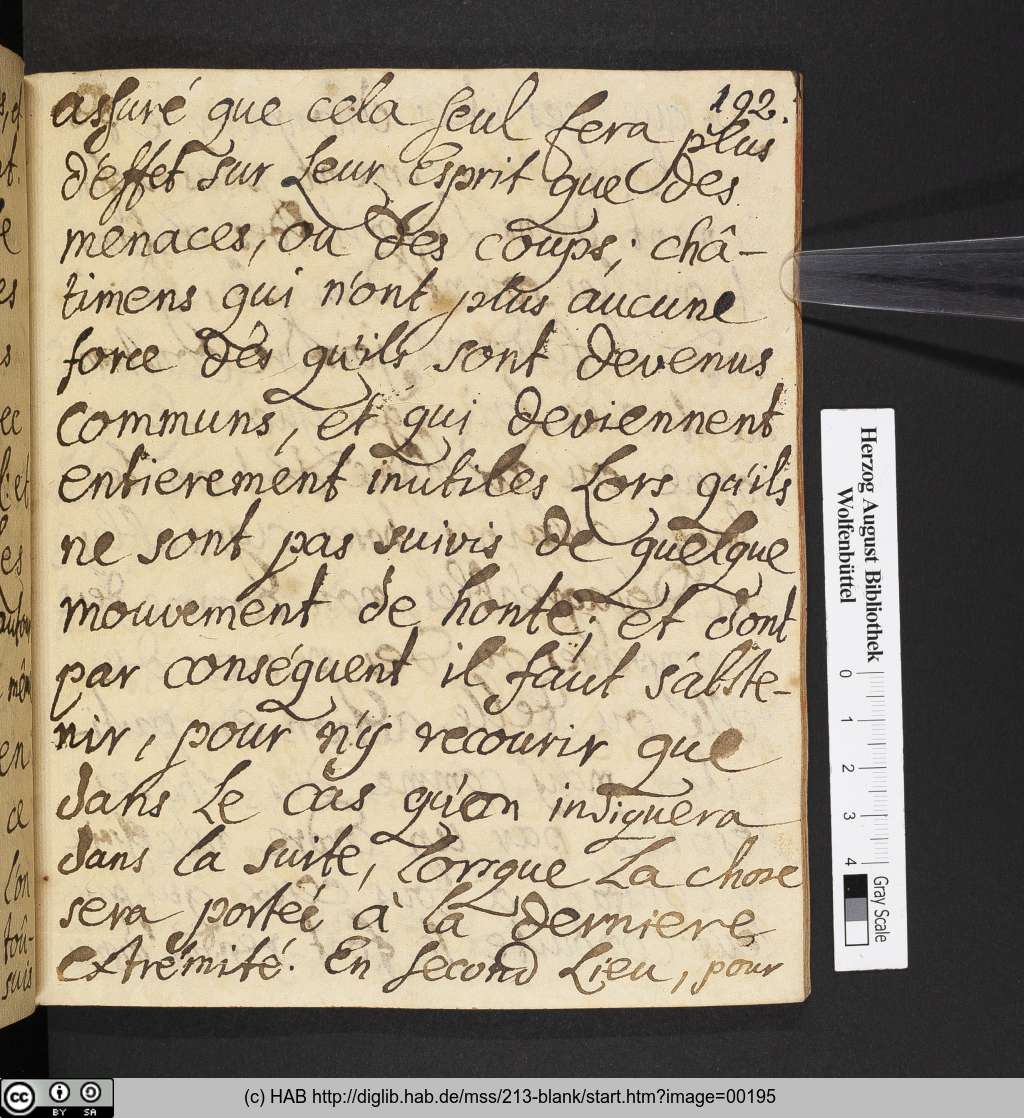 192.
assuré que cela seul fera plus
d'effet sur Leur Esprit que des
menaces, ou des coups; châ-
timens qui n'ont plus aucune
force dés qu'ils sont devenus
communs, et qui deviennent
entierement inutiles Lors qu'ils
ne sont pas suivis de quelque
mouvement de honte; et dont
par conséquent il faut s'abste-
nir, pour n'y recourir que
dans Le cas qu'on indiquera
dans la suite, Lorsque La chose
sera porteé à la derniere
extrémité. En second Lieu, pour
Herzog August Bibliothek
Wolfenbüttel
0 1 2 3 4
Gray Scale
cc BY SA
(c) HAB http://diglib.hab.de/mss/213-blank/start.htm?image=00195